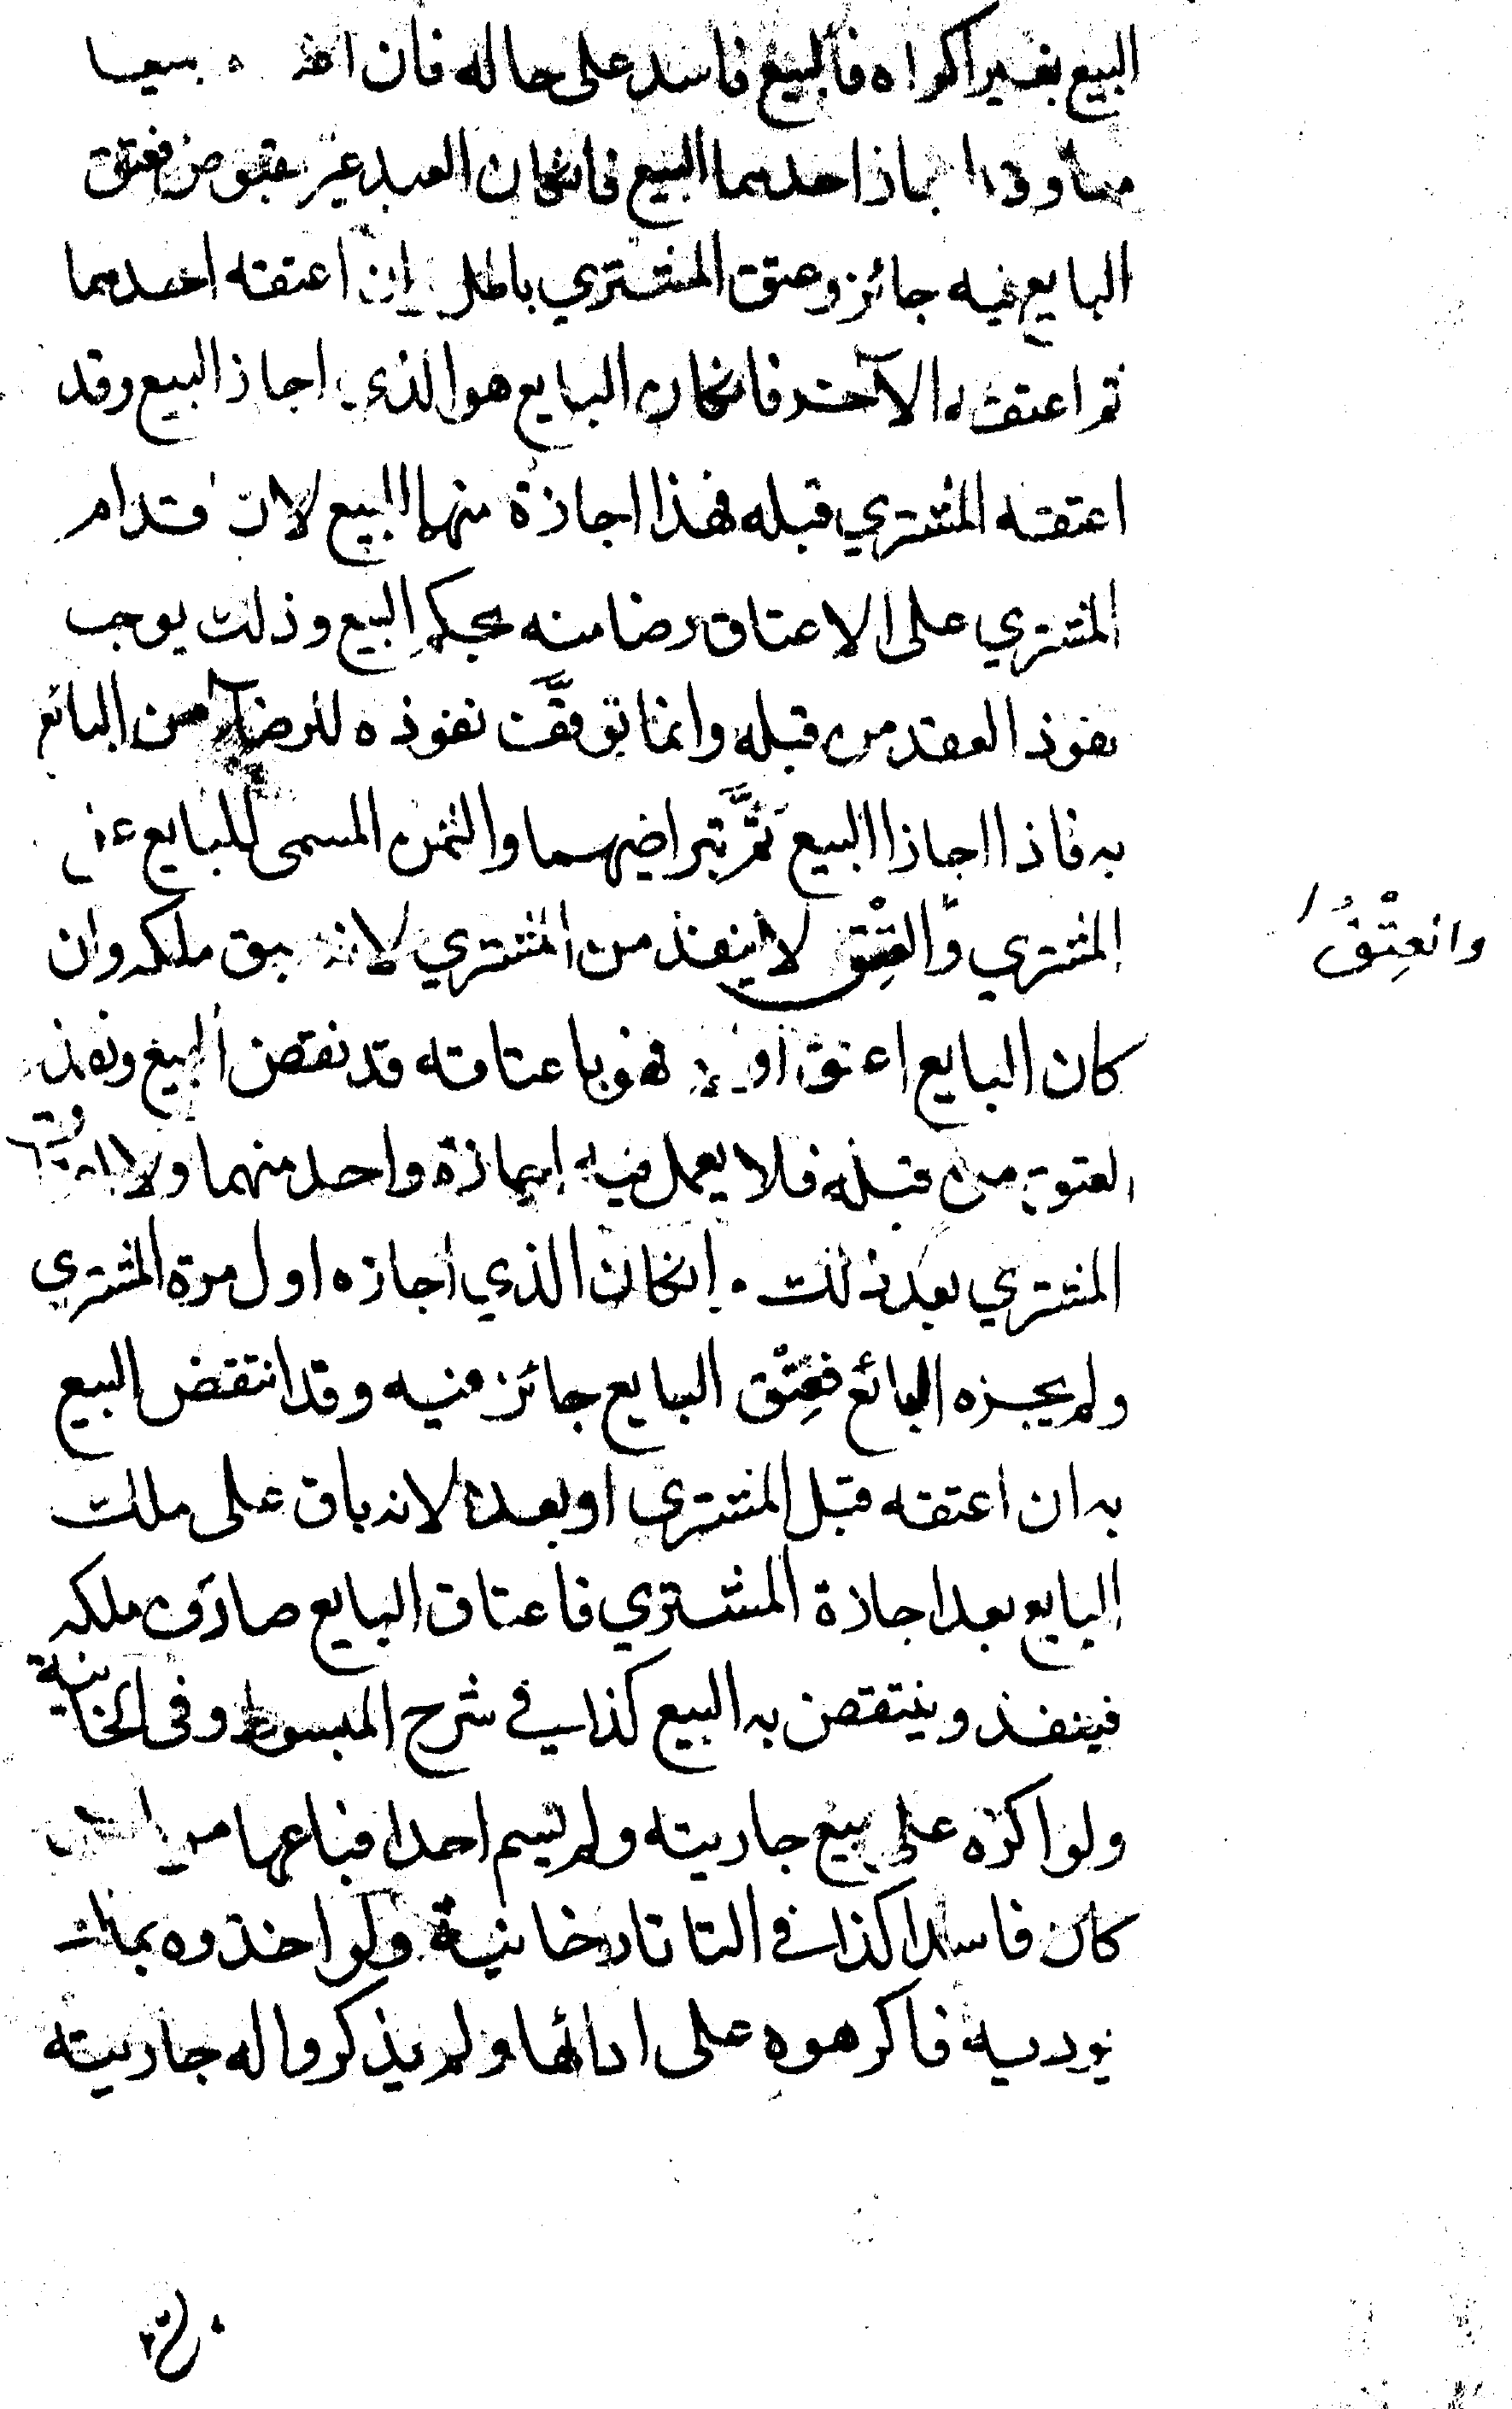 البيع بغير اكراه فالبيع فاسد على حاله فان بيعا
احدهما البيع فانكان العبد غير مقبوض فعتق
البايع فيه جائز وعتق المشتري باطل ان اعتقه احدهما
ثم اعتقه الآخر فانكان البايع هو الذي اجاز البيع وقد
اعتقه المشتري قبله فهذا اجازة منهما البيع لان قدام
المشتري على الاعتاق رضا منه بحكم البيع وذلك يوجب
نفوذ العقد من قبله وانما توقَّف نفوذه للرضا من البائع
به فاذا اجاز البيع تَمَّ بتراضيهما والثمن المسمى للبايع
المشتري والعِتْق لا ينفذ من المشتري لانه سبق ملكه وان
وانعِتْقُ
كان البايع اعتق فهو باعتاقه قد نقض البيع ونفذ
العتق من قبله فلا يعمل فيه اجازة واحد منهما ولا
المشتري بعد ذلك انكان الذي اجازه اول مرة المشتري
ولم يجزه البائع فعِتْق البايع جائز فيه وقد انتقض البيع
به ان اعتقه قبل المشتري او بعده لانه باق على ملك
البايع بعد اجازة المشتري فاعتاق البايع صادف ملكه
فينفذ وينتقض به البيع كذا في شرح المبسوط وفي الخانية
ولو اكره على بيع جاريته ولم يسم احدا فباعها من
كان فاسدا كذا في التاتارخانية ولو اخذوه بمال
يوديه فاكرهوه على ادائها ولم يذكروا له جاريته